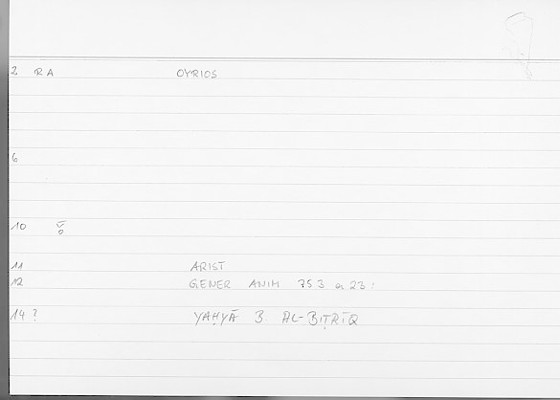 2 RA OYRIOS
6
10
11 ARIST
12 GENER ANIM 753 a 23:
14 ? YAḤYĀ B AL-BIṬRĪQ